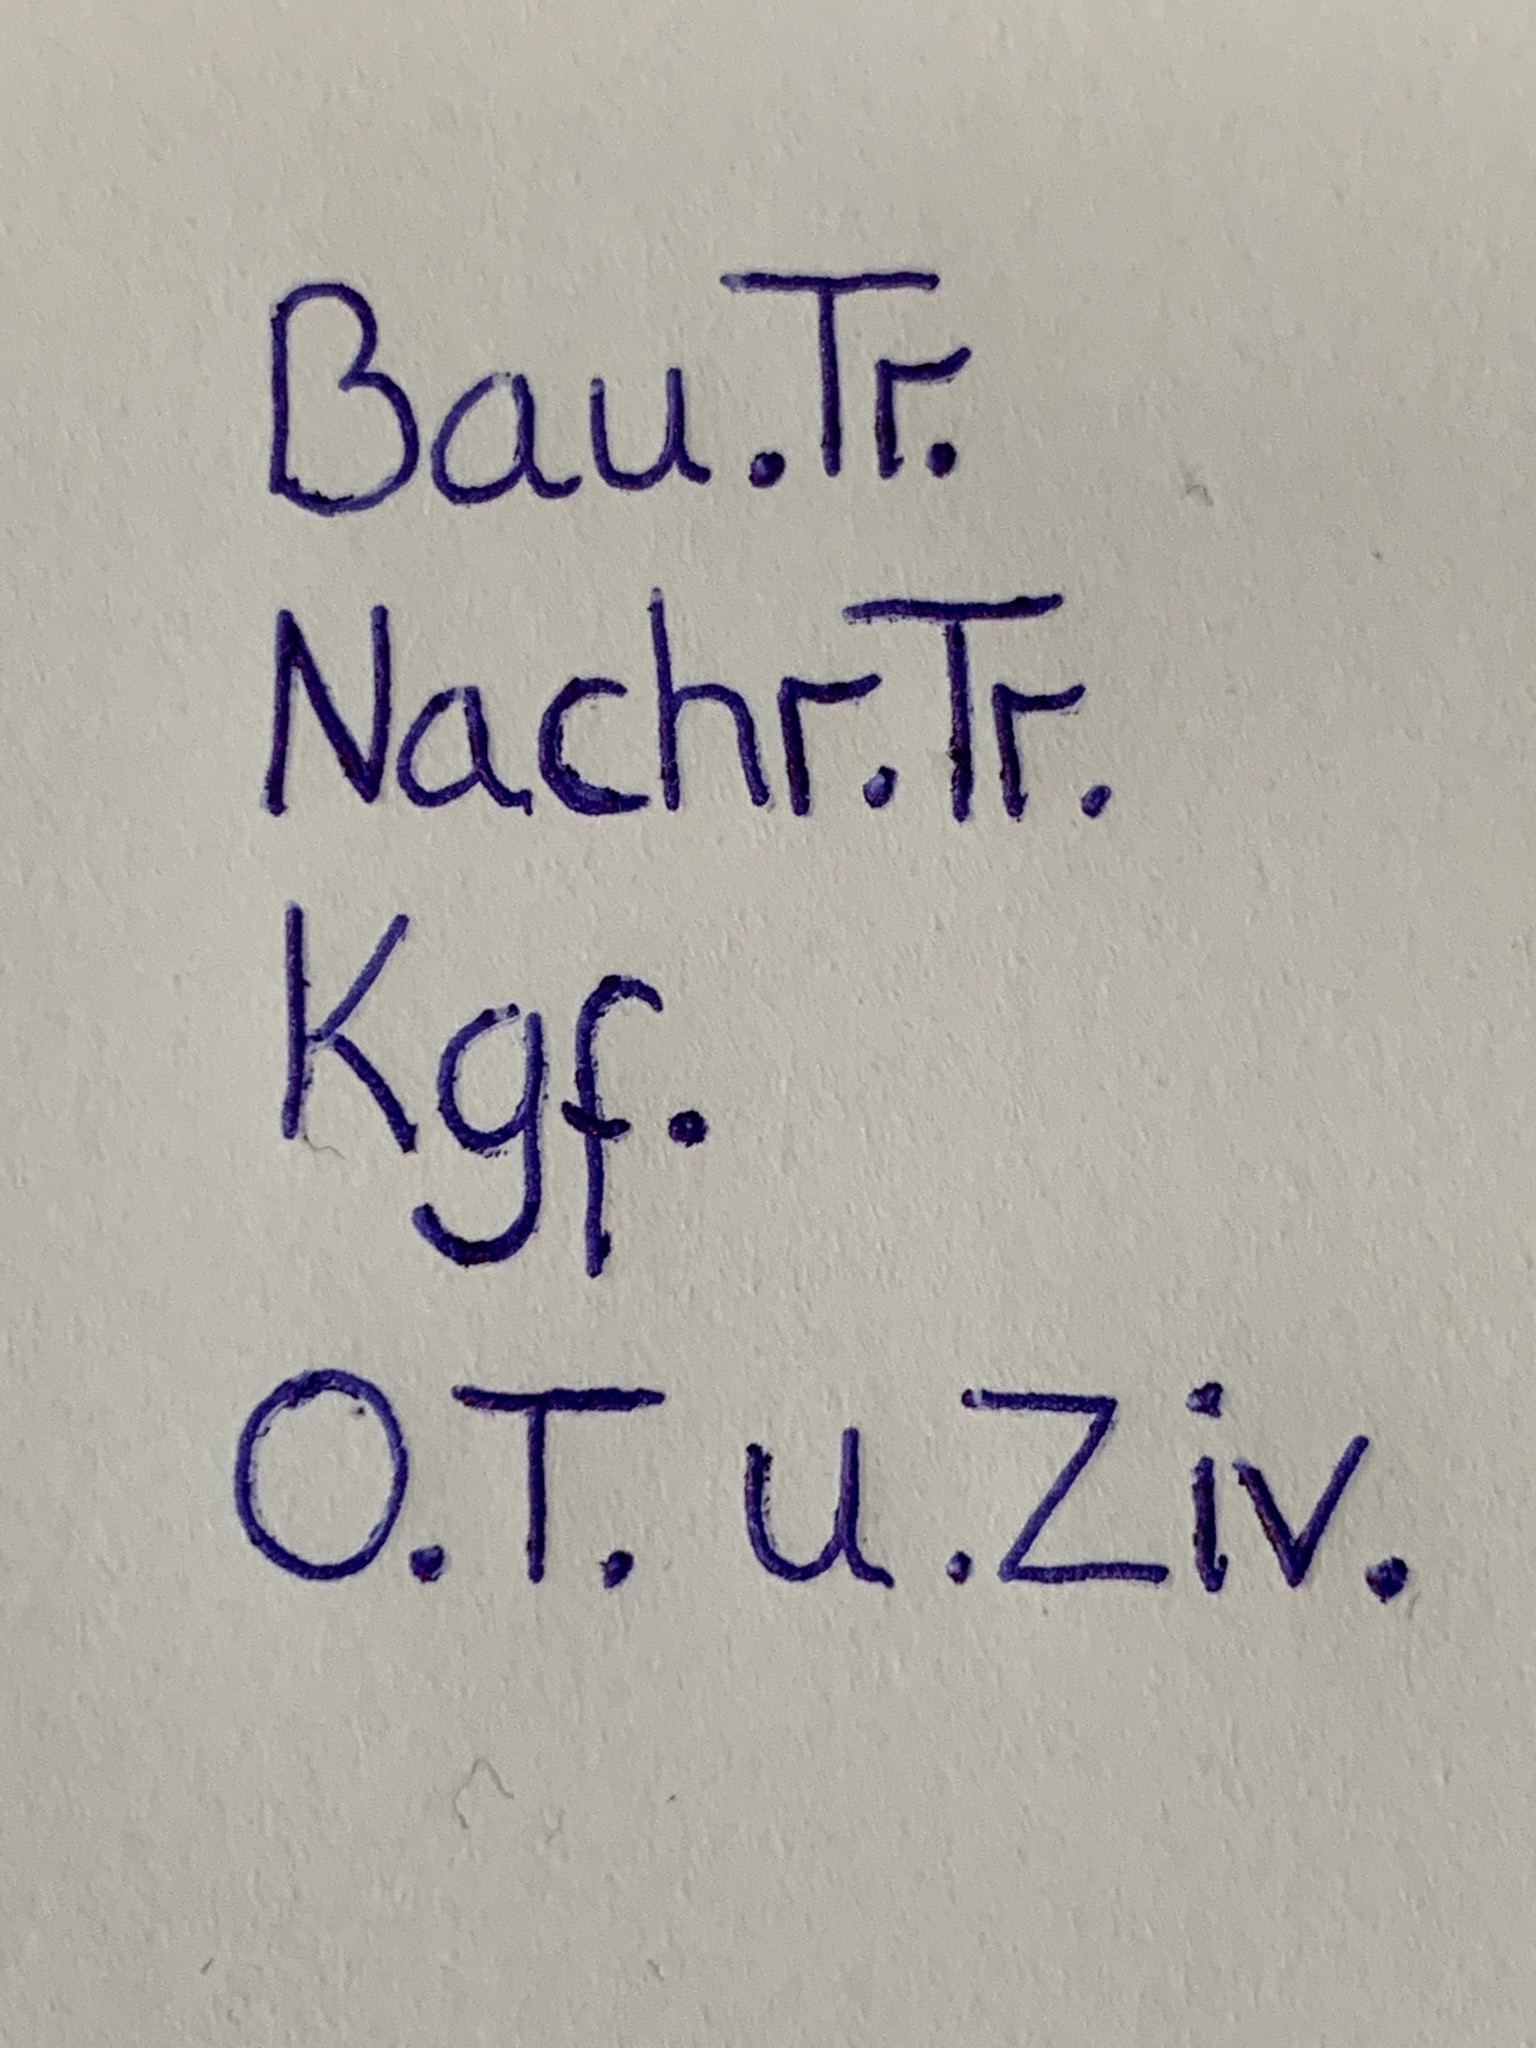 Bau.Tr.
Nachr.Tr.
Kgf.
O.T. u.Ziv.